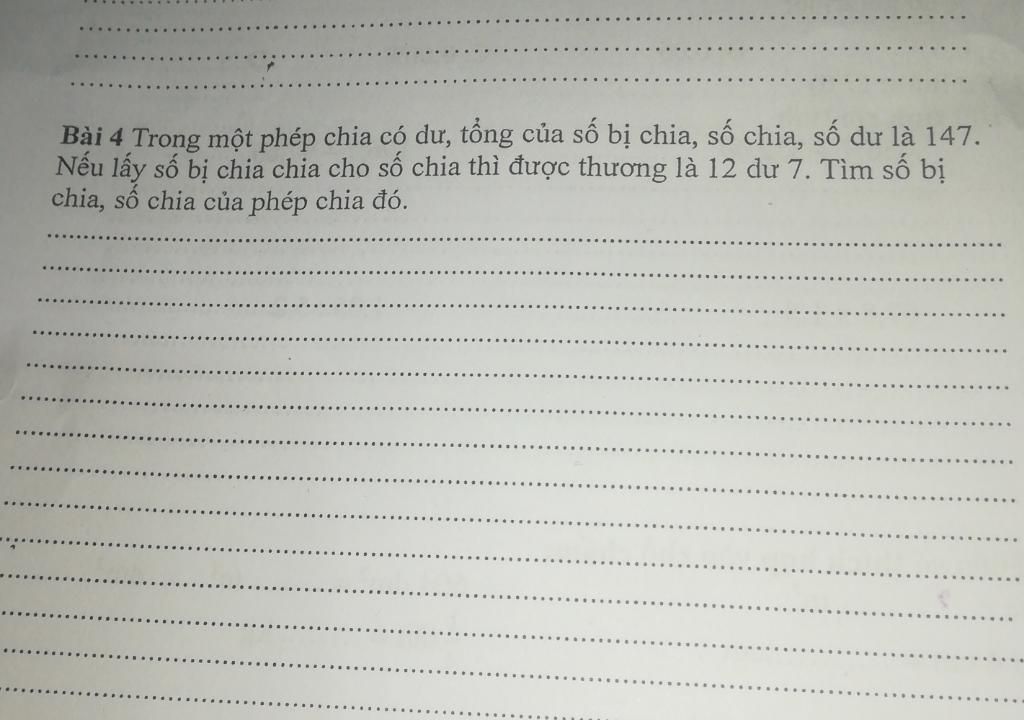 Bài 4 Trong một phép chia có dư, tổng của số bị chia, số chia, số dư là 147.
Nếu lấy số bị chia chia cho số chia thì được thương là 12 dư 7. Tìm số bị
chia, số chia của phép chia đó.